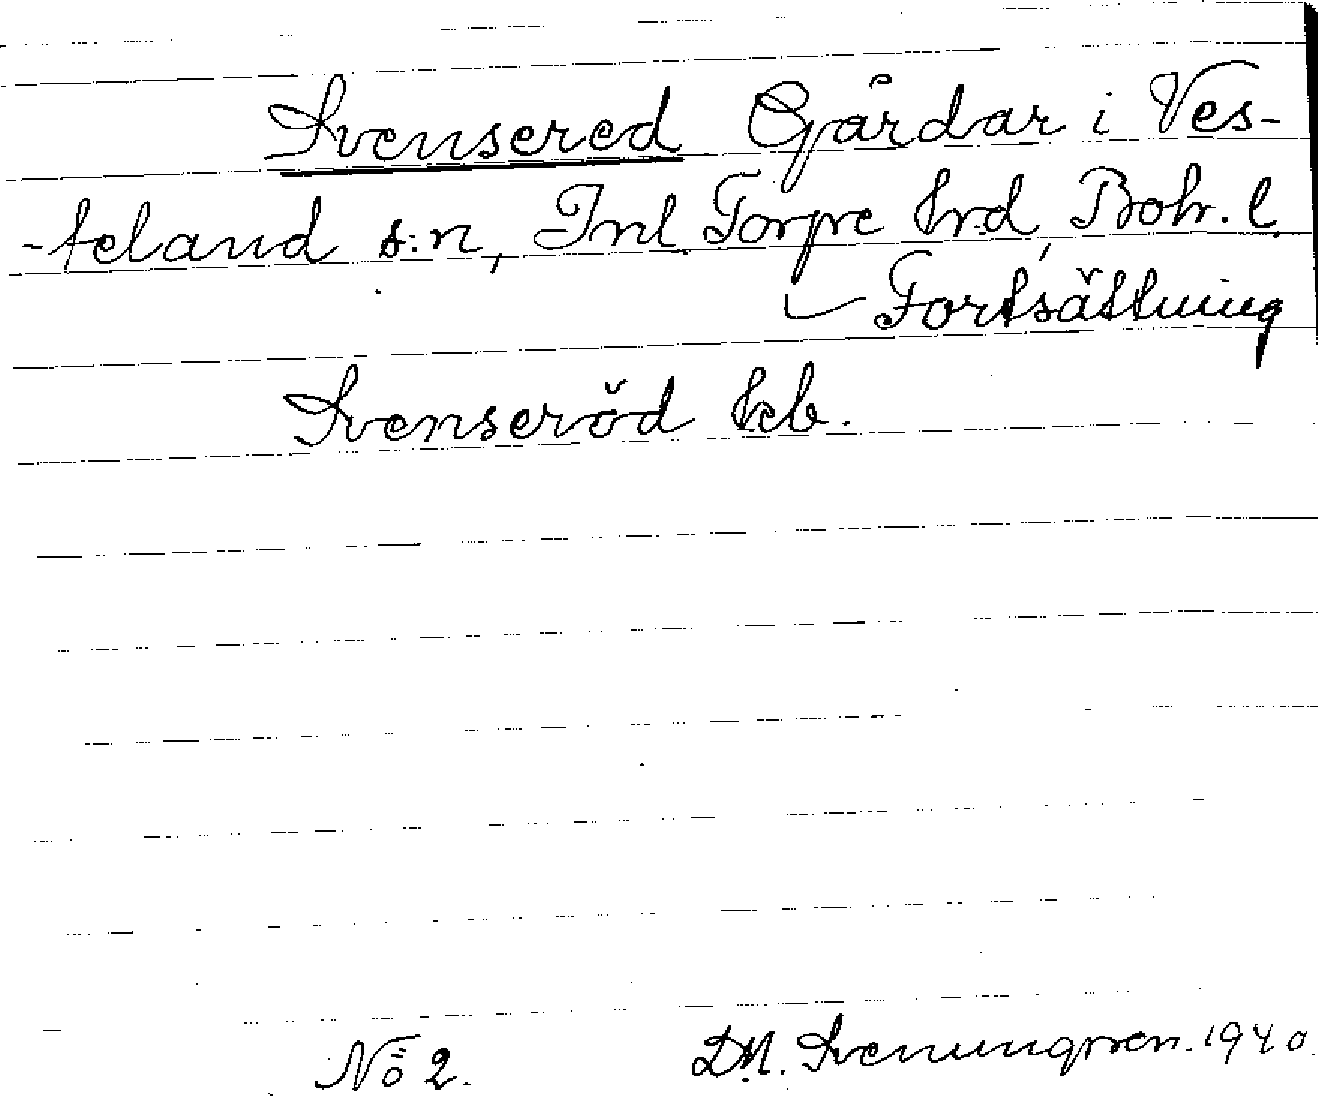 Svensered Gårdar i Ves-
-teland s:n, Inl. Torpe hrd, Boh. l.
Fortsättning
Svenseröd
No 2. D.M. Svenungsson. 1940.